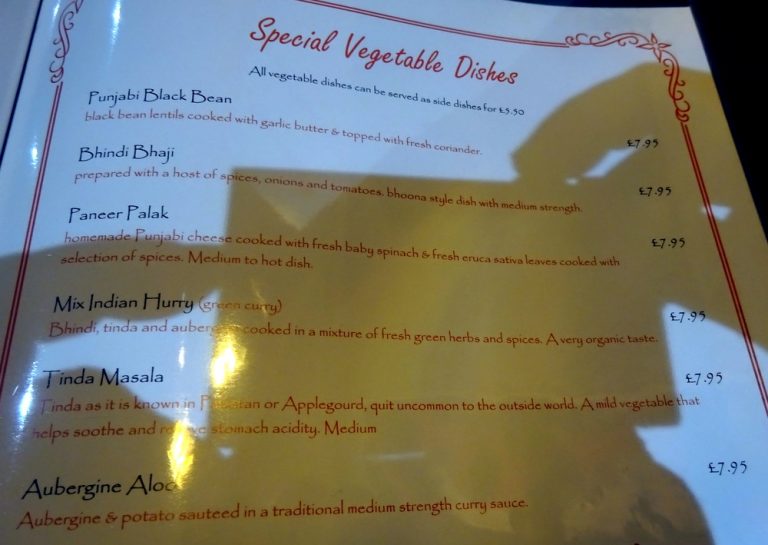 Special Vegetable Dishes
All vegetable dishes can be served as side dishes for £5.50
Punjabi Black Bean
black bean lentils cooked with garlic butter & topped with fresh coriander.
£7.95
Bhindi Bhaji
prepared with a host of spices, onions and tomatoes. bhoona style dish with medium strength.
£7.95
Paneer Palak
homemade Punjabi cheese cooked with fresh baby spinach & fresh eruca sativa leaves cooked with
selection of spices. Medium to hot dish.
£7.95
Mix Indian Hurry (green curry)
Bhindi, tinda and cooked in a mixture of fresh green herbs and spices. A very organic taste.
£7.95
Tinda Masala
Tinda as it is known in or Applegourd, quit uncommon to the outside world. A mild vegetable that
helps soothe and stomach acidity. Medium
£7.95
Aubergine Aloo
Aubergine & potato sauteed in a traditional medium strength curry sauce.
£7.95